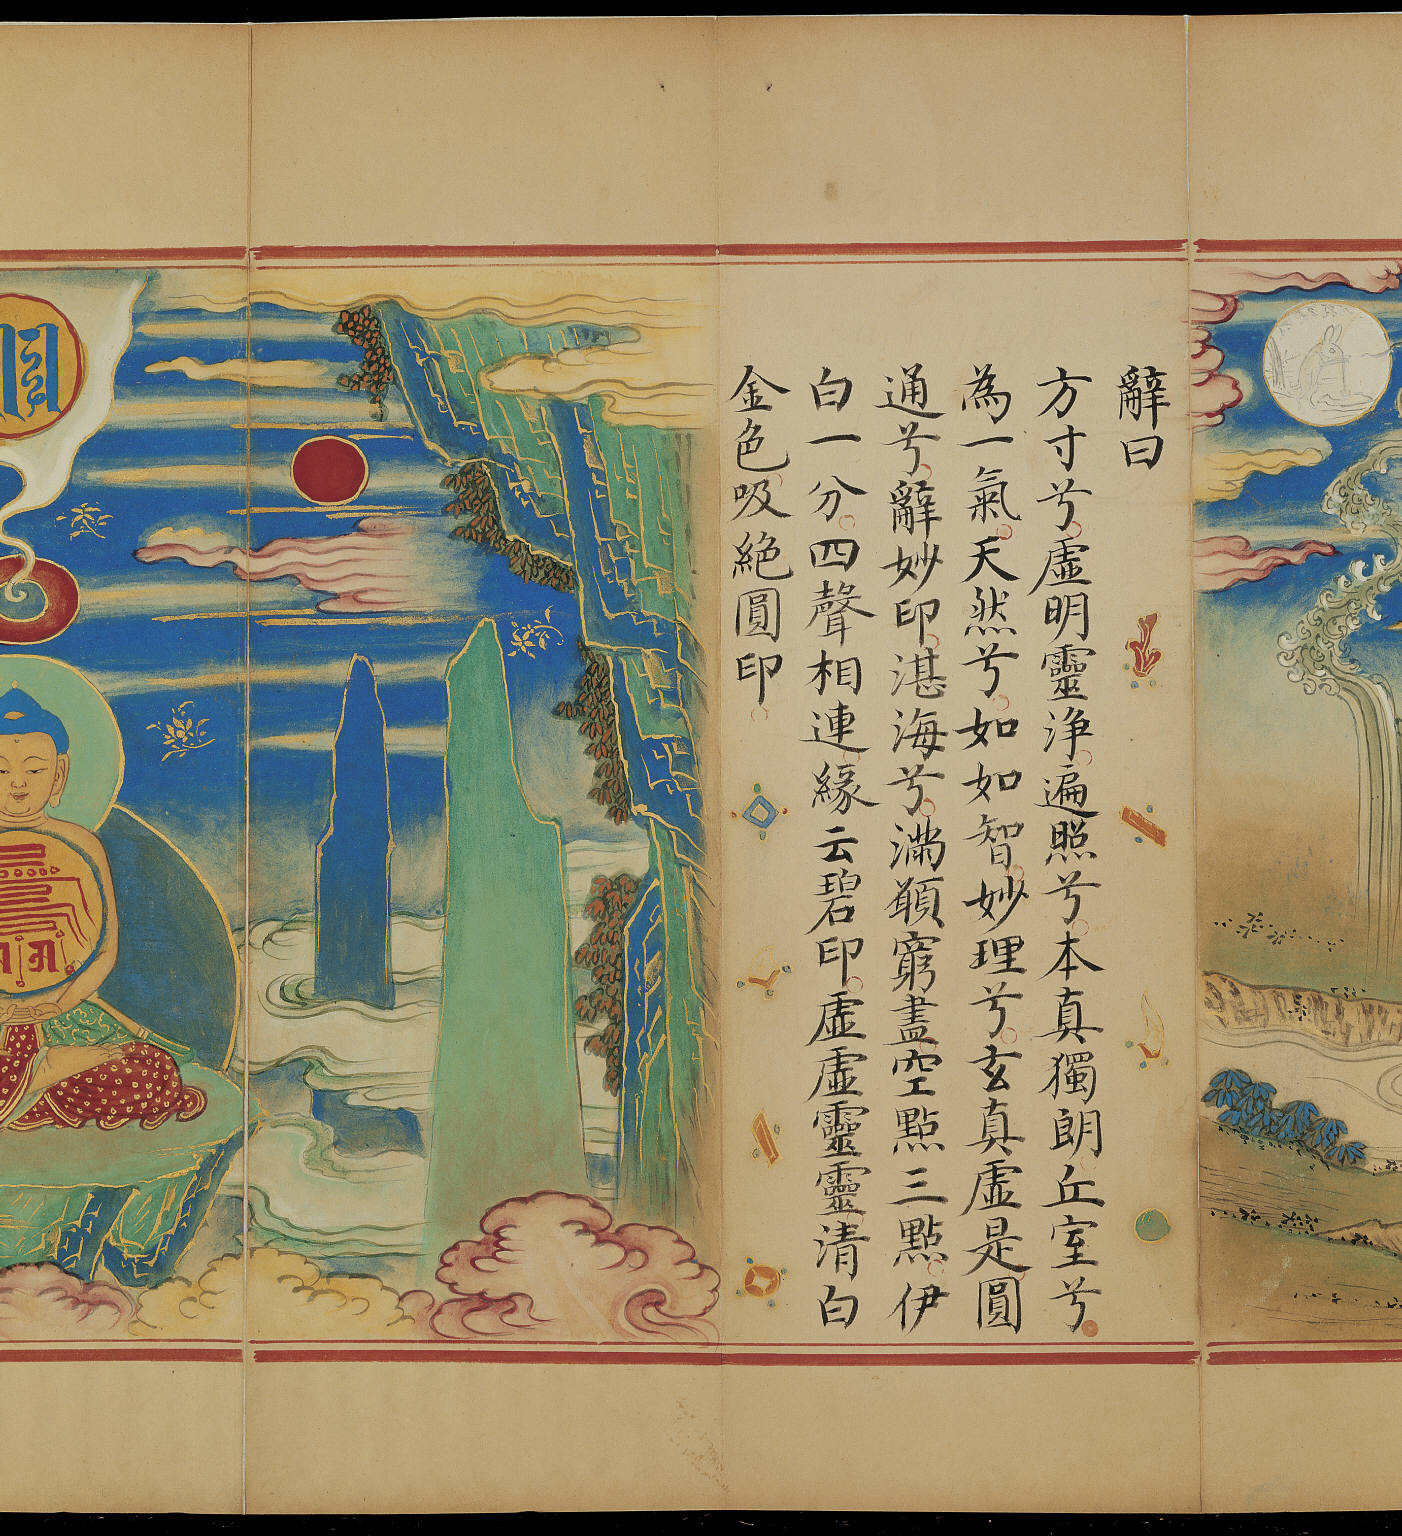 辭曰
方寸兮虛明靈淨遍照兮本真獨朗丘室兮
為一氣天然兮如如智妙理兮玄真虛是圓
通兮辭妙印湛海兮滿顀窮盡空點三點伊
白一分四聲相連緣云碧印虛虛靈靈清白
金色吸絕圓印